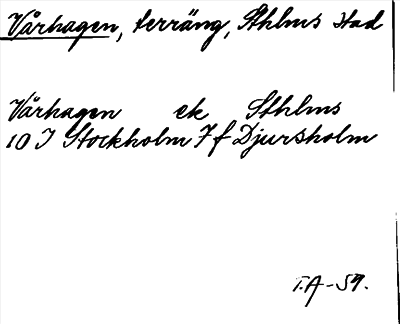 Vårhagen, terräng, Sthlms stad
Vårhagen ek Sthlms
10 I Stockholm 7 f Djursholm
T.A-59.